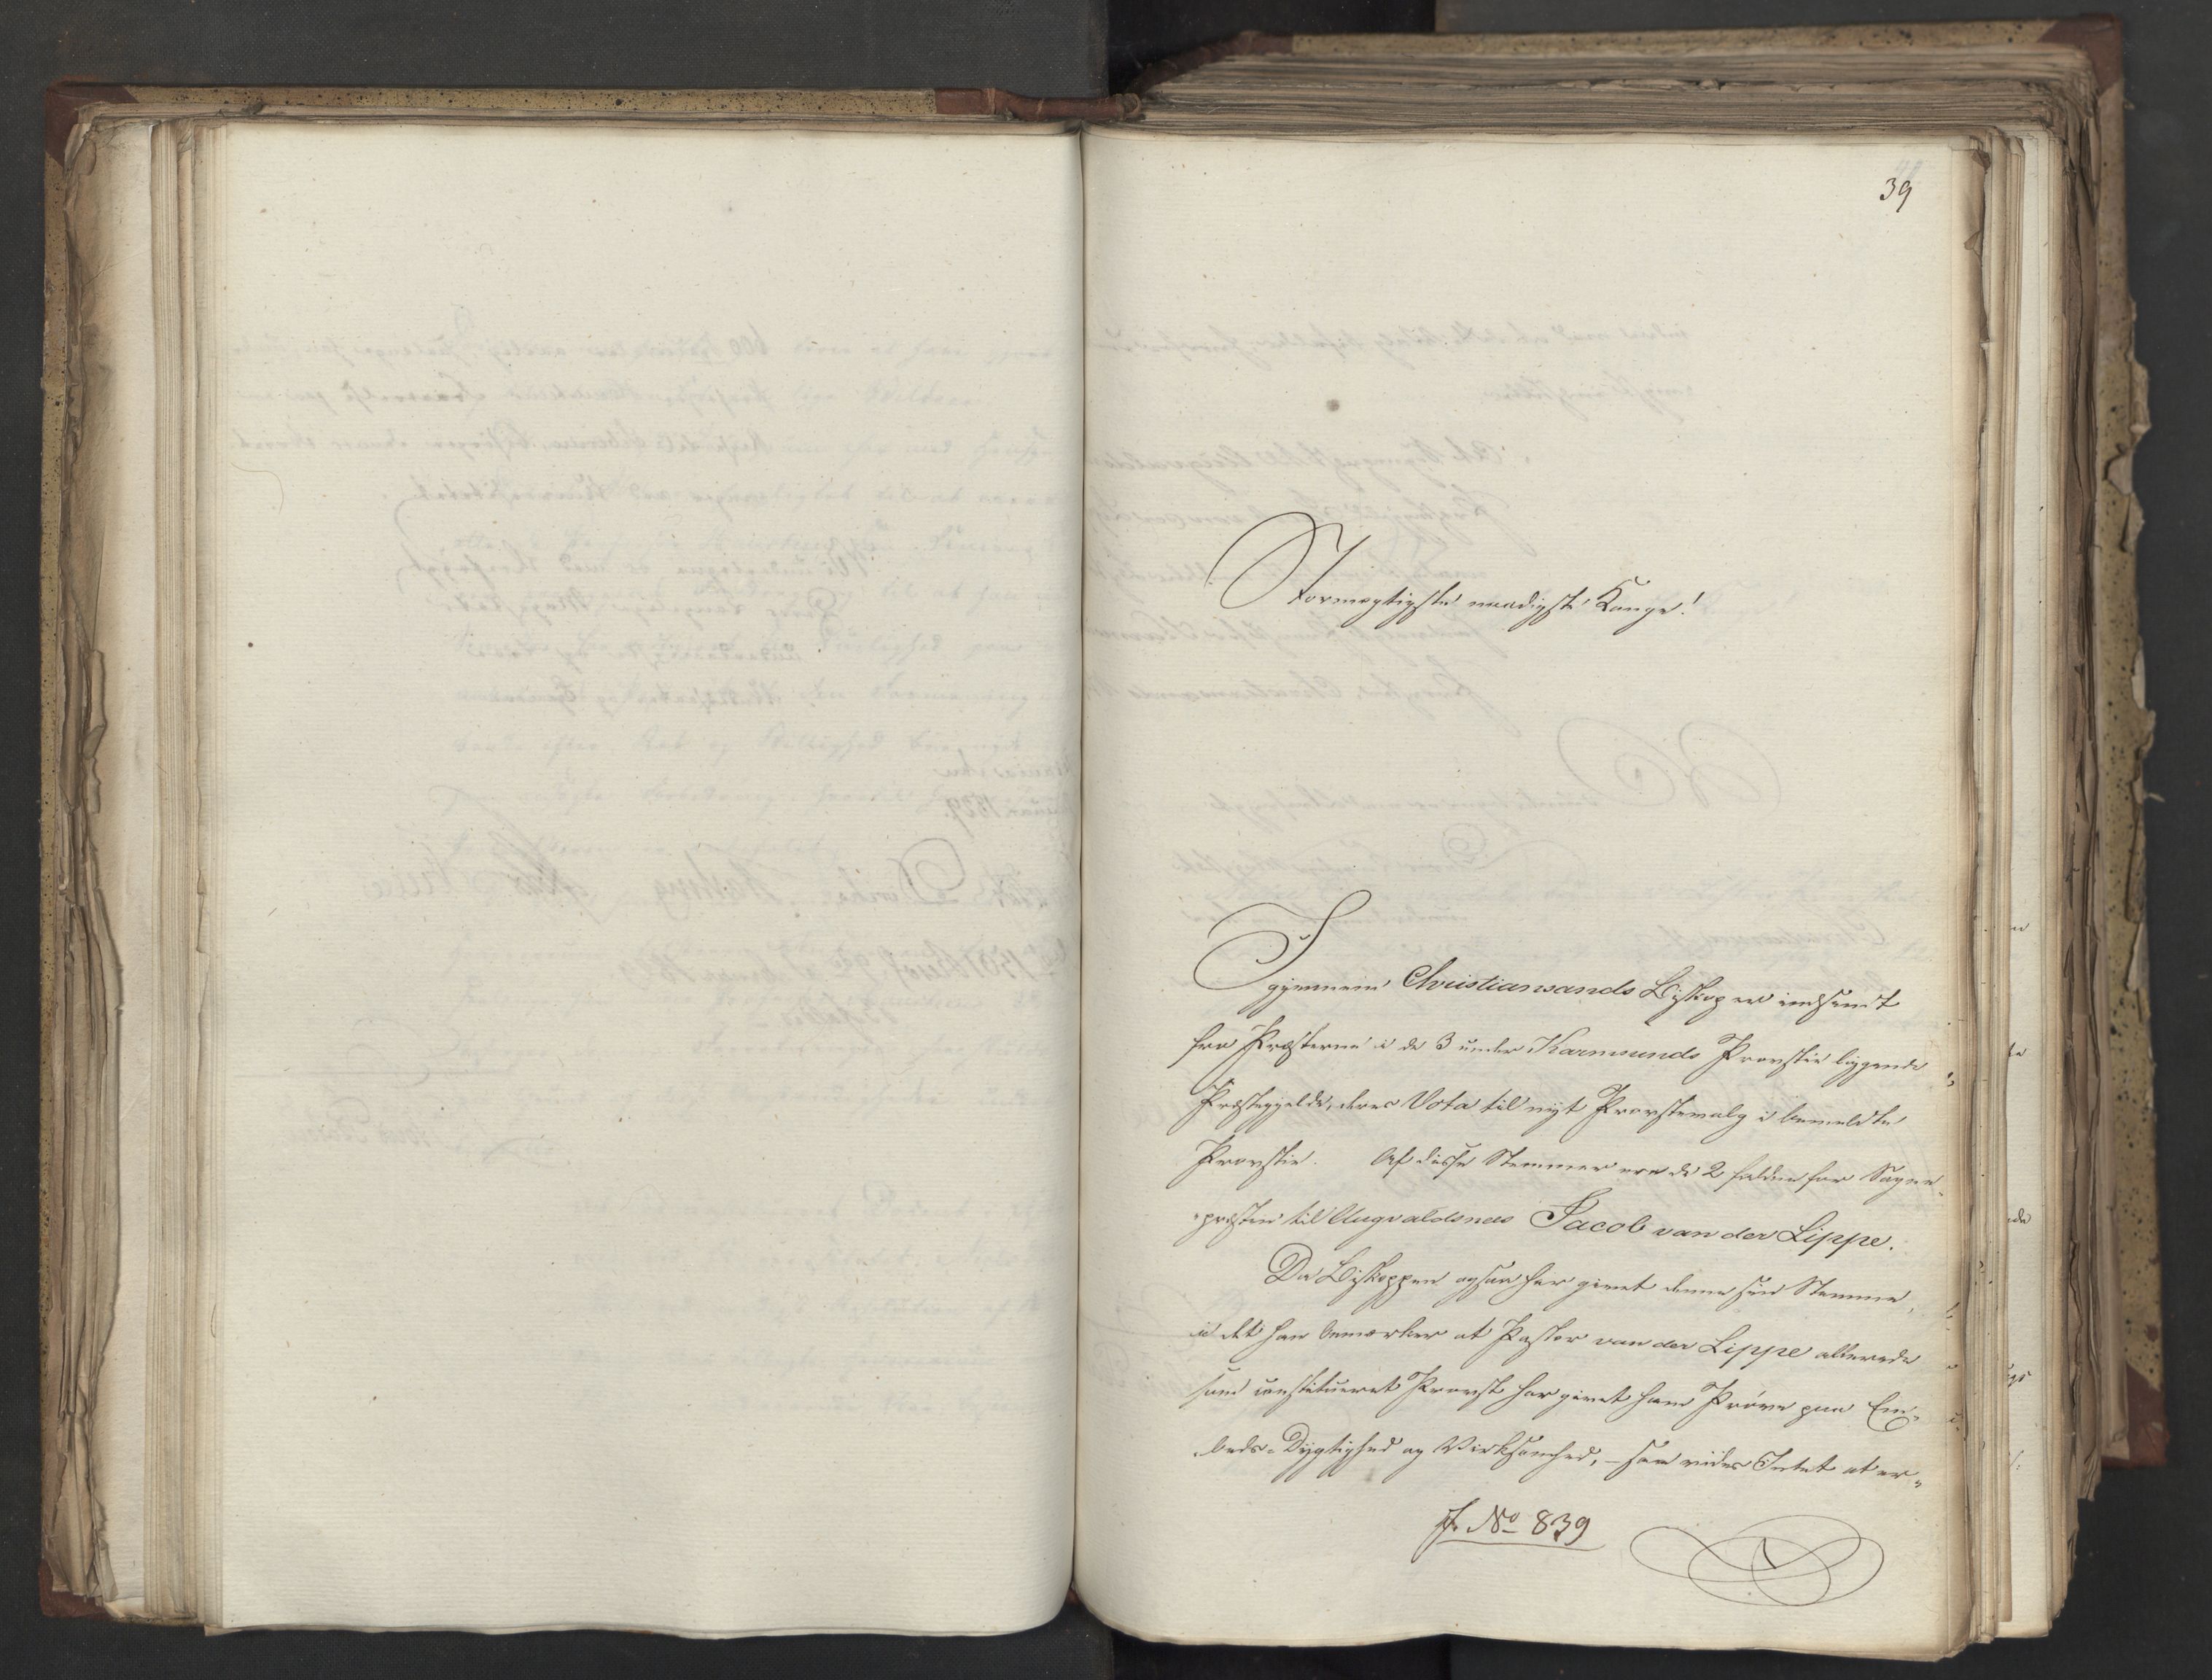 39
Stormægtigste naadigste Konge!
Igjennem Christiansands Biskop er indsendt
fra Præsterne i de 3 under Karmsunds Provstie liggende
Præstegjelde, deres Vota til nyt Provstevalg i bemeldte
Provstie. Af disse Stemmer ere de 2 faldne for Sogne-
præsten til Augvaldsnæs Jacob van der Lippe.
Da Biskoppen ogsaa har givet denne sin Stemme,
i det han bemærker at Pastor van der Lippe allerede
som constitueret Provst har givet ham Prøve paa Em-
beds-Dygtighed og Virksomhed, – saa vides Intet at er-
J. No 839